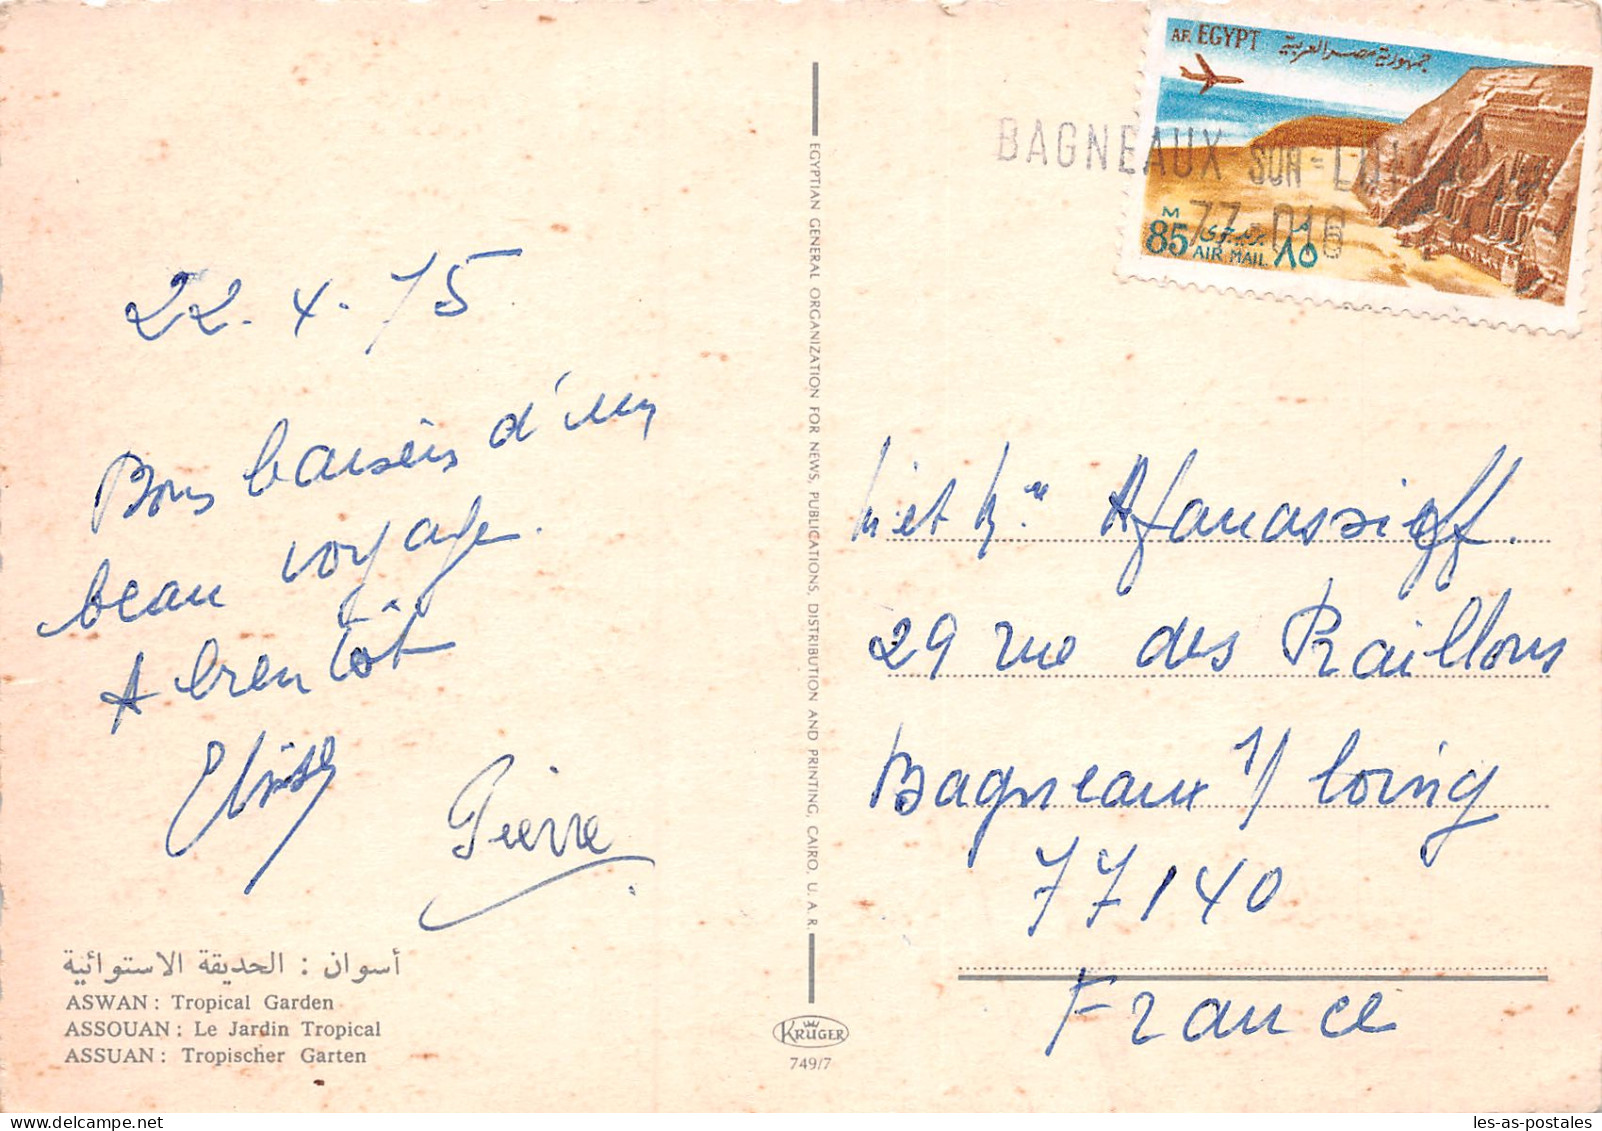 22.4.75
Bons baisers d'un
beau voyage.
A bientôt
Pierre
أسوان : الحديقة الاستوائية
ASWAN : Tropical Garden
ASSOUAN : Le Jardin Tropical
ASSUAN : Tropischer Garten
EGYPTIAN GENERAL ORGANIZATION FOR NEWS, PUBLICATIONS, DISTRIBUTION AND PRINTING, CAIRO, U. A. R.
KRÜGER
749/7
A.R. EGYPT جمهورية مصر العربية
M
85 بريد جوى ٨٥ م
AIR MAIL
BAGNEAUX SUR-LOING
77-016
M et Mme Afanassieff.
29 rue des Raillons
Bagneaux s/ loing
77140
France
les-as-postales